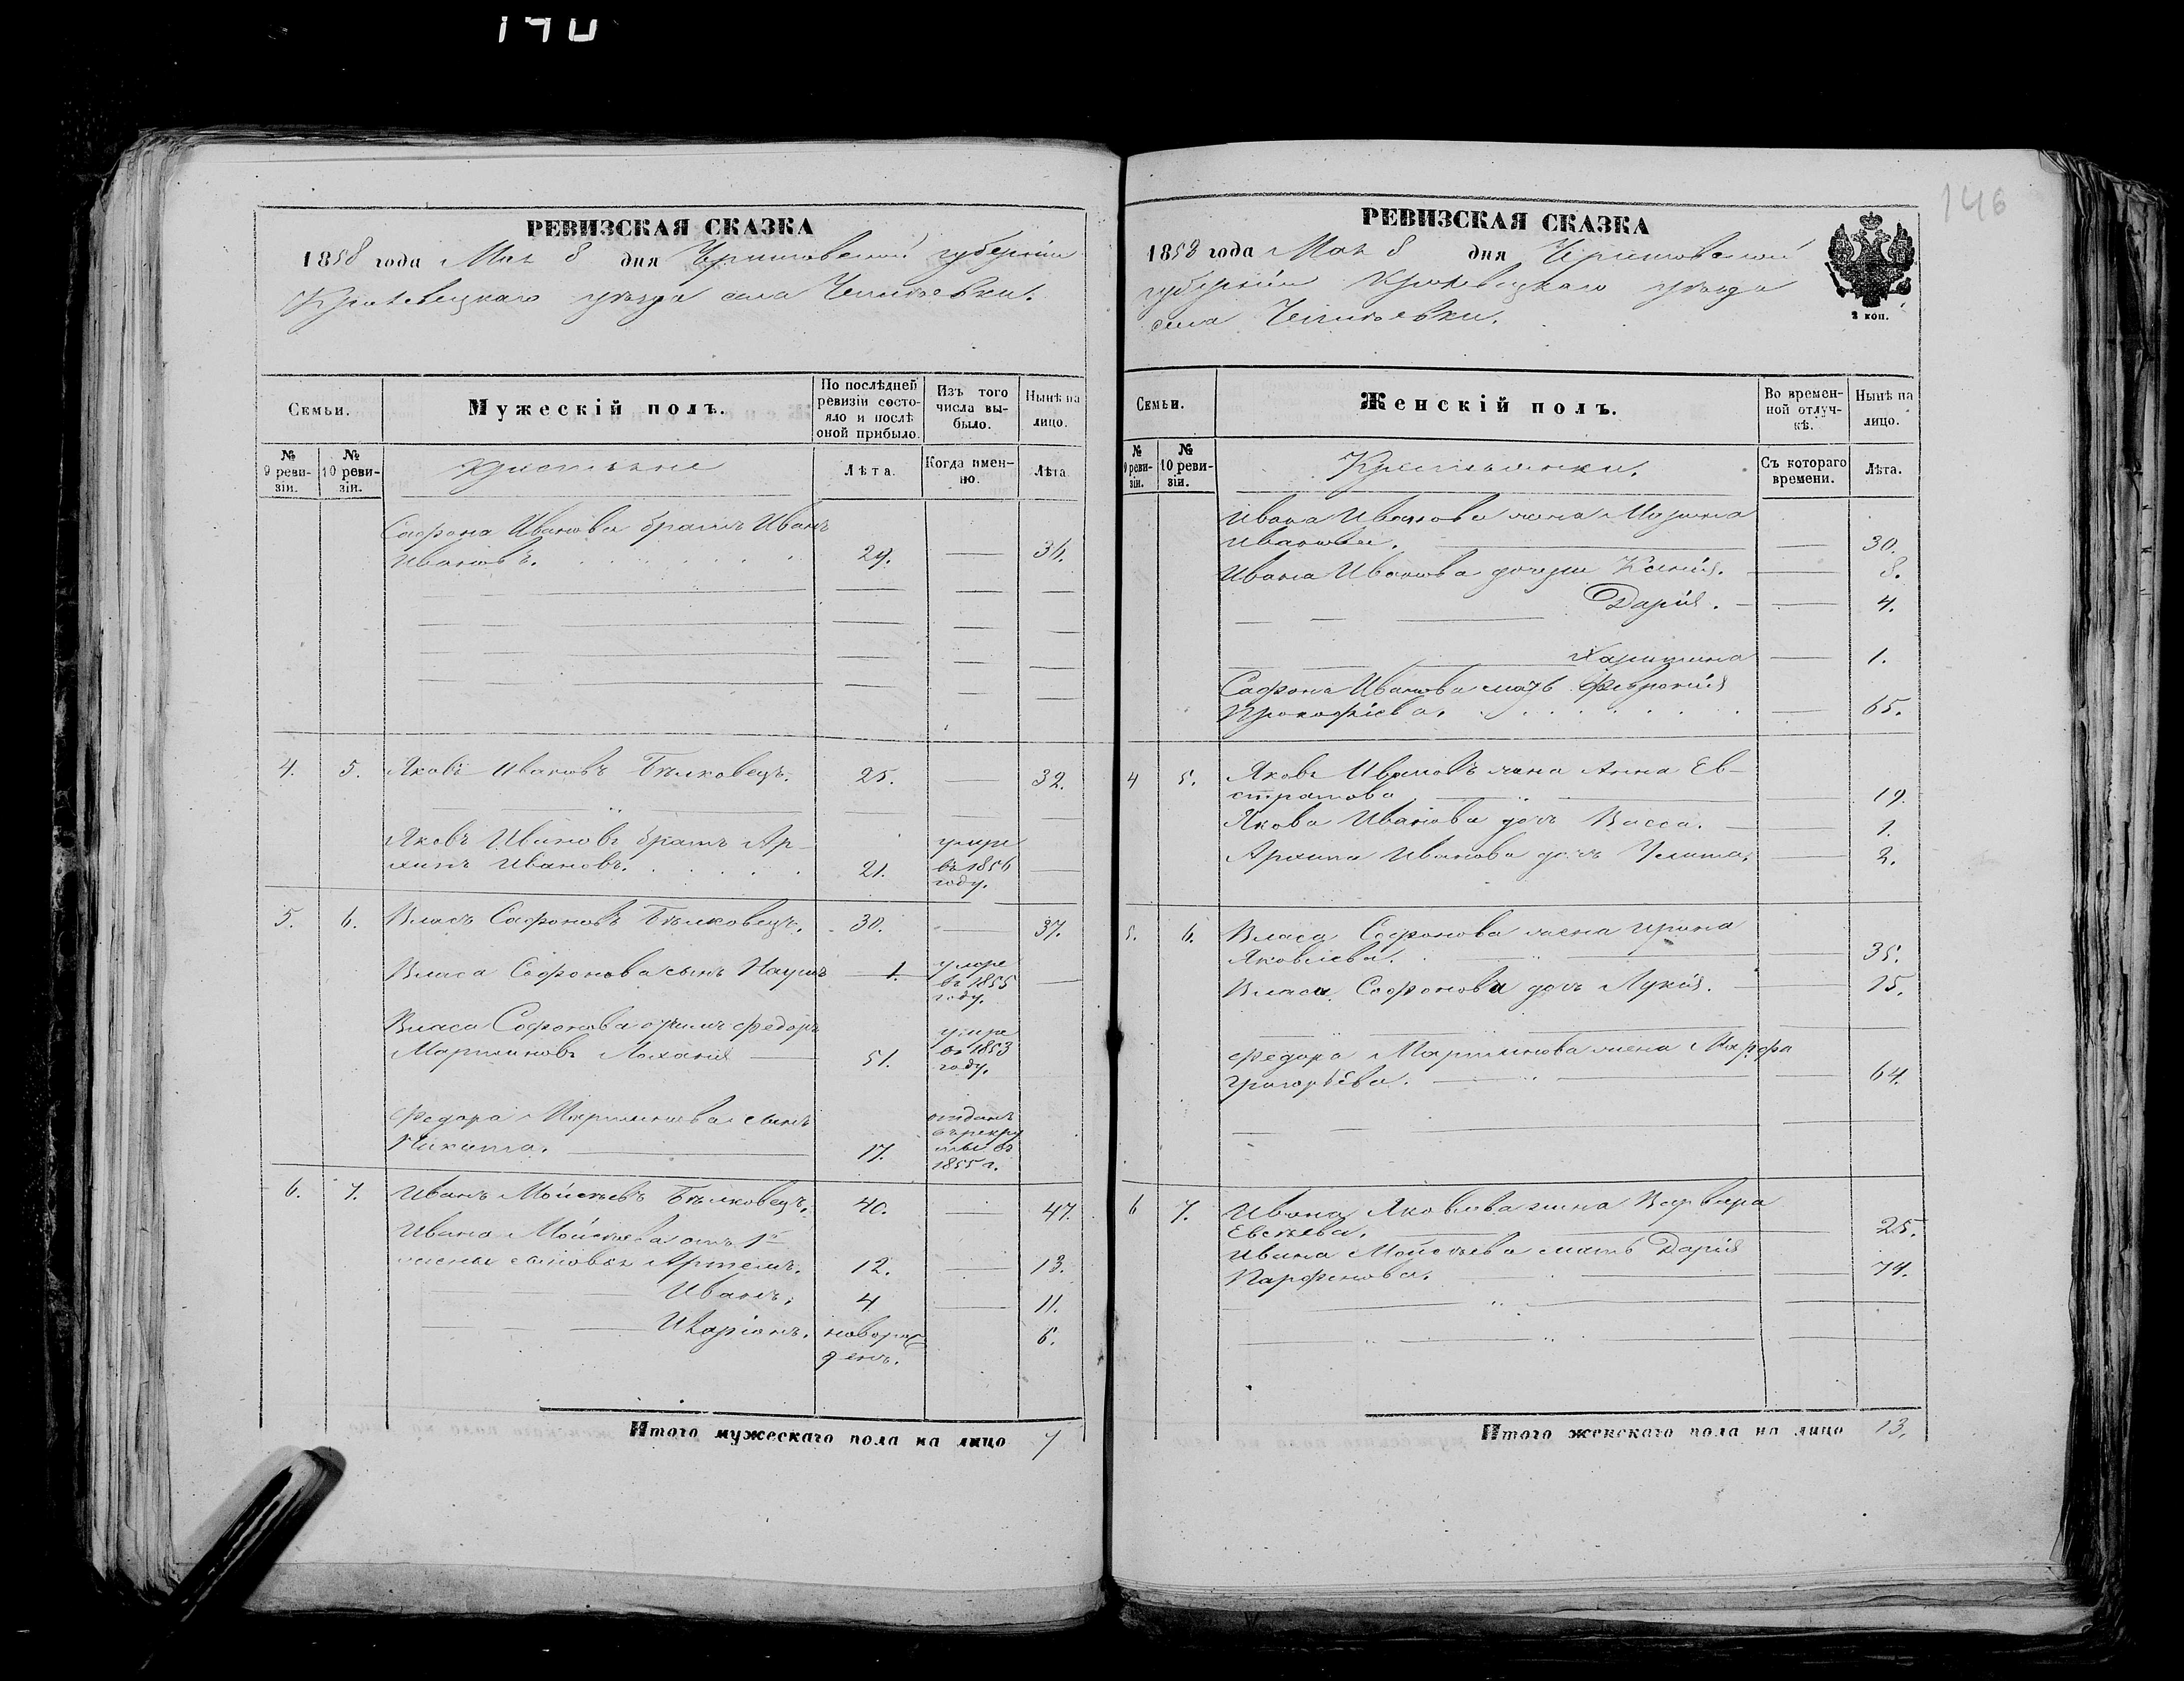 140
РЕВИЗСКАЯ СКАЗКА
1858 года Мая 8 дня Черниговской губерніи
Кролевецкаго уѣзда села
Семьи.
Мужескій полъ.
По послѣдней ревизіи состояло и послѣ оной прибыло.
Изъ того числа выбыло.
Нынѣ на лицо.
№ 9 ревизіи.
№ 10 ревизіи.
Крестьяне
Лѣта.
Когда именно.
Лѣта
Сафрона Иванова братъ Иванъ
Ивановъ. 29. 36.
4. 5. Яковъ Ивановъ Бѣлковецъ. 25. 32.
Яковъ Ивановъ братъ Ар-
хипъ Ивановъ. 21. умре въ 1856 году.
5. 6. Власъ Сафоновъ Бѣлковецъ. 30. 37.
Власа Софонова сынъ Наумъ 1 умре въ 1855 году.
Власа Софонова отчимъ Федоръ
Мартиновъ 51. умре въ 1853 году.
Федора Мартинова сынъ
Никита. 17. отданъ въ рекруты въ 1855 г.
6. 7. Иванъ Мойсеевъ Бѣлковецъ. 40. 47.
Ивана Мойсеева отъ 1й
жены сыновья Артемъ. 12. 13.
Иванъ. 4 11.
Иларіонъ. новорожденъ. 6.
Итого мужескаго пола на лицо 7
146
РЕВИЗСКАЯ СКАЗКА
1858 года Мая 8 дня Черниговской
губерніи Кролевецкаго уѣзда
села
2 коп.
Семьи.
Женскій полъ.
Во временной отлучкѣ.
Нынѣ на лицо.
№ 9 ревизіи.
№ 10 ревизіи.
Крестьянки.
Съ котораго времени.
Лѣта.
Ивана Иванова жена Марина
Иванова. 30.
Ивана Иванова дочери Ксенія. 8.
Дарія. 4.
Харитина 1.
Сафрона Иванова мать Февронія
Прокофіева. 65.
4 5. Яковъ Ивановъ жена Анна Ев-
стратова 19.
Якова Иванова дочь Васса. 1.
Архипа Иванова дочь Улита. 2.
5. 6. Власа Софонова жена Ирина
Яковлева. 35.
Власа Софонова дочь Лукія. 15.
Федора Мартинова жена Марфа
Григорьева. 64.
6 7. Ивана Яковлева жена Варвара
Евсѣева. 25.
Ивана Мойсеева мать Дарія
Парфенова. 74.
Итого женскаго пола на лицо 13.